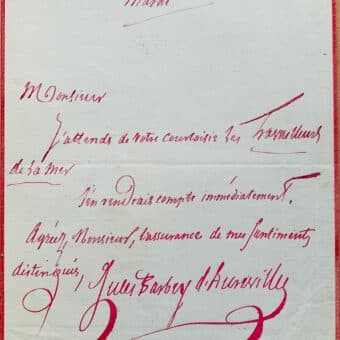 Mardi
Monsieur
J'attends de votre courtoisie Les Travailleurs
de La Mer
J'en rendrais compte immédiatement.
Agréez, Monsieur, l'assurance de mes Sentiments
distingués,
Jules Barbey d'Aurevilly